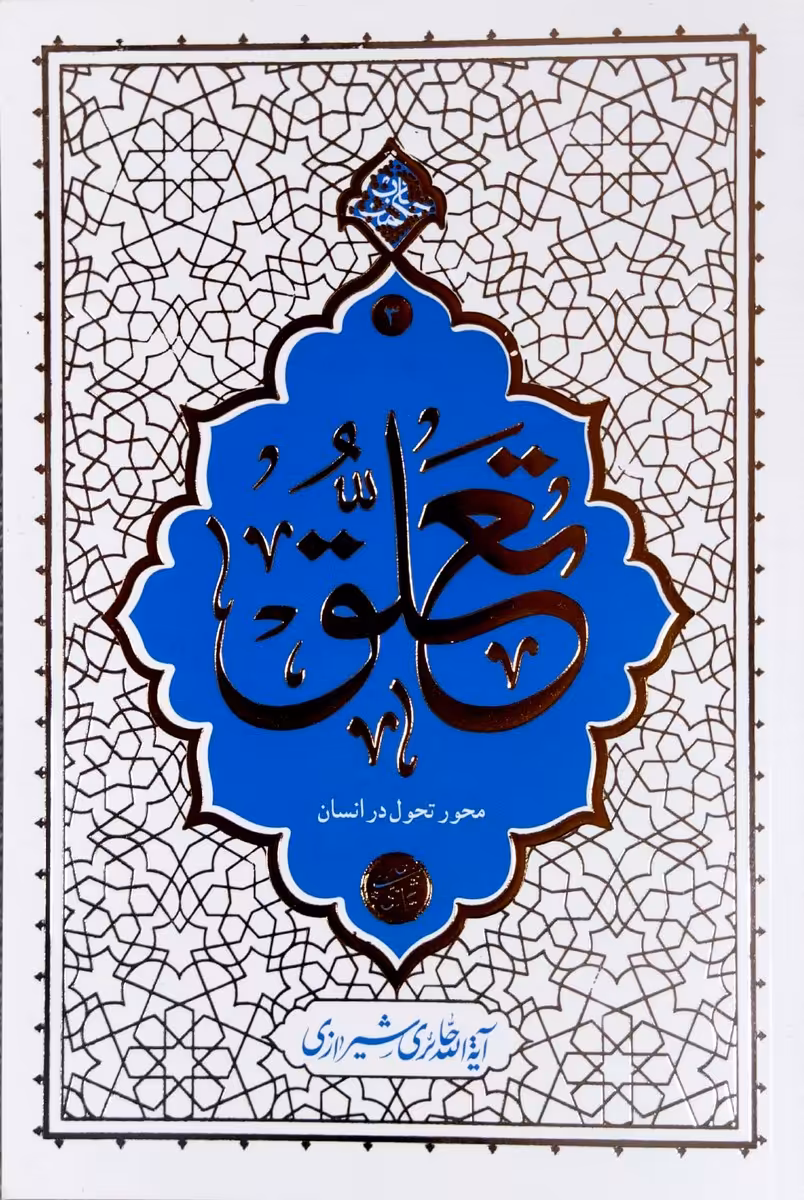 ۳
تعلّق
محور تحول در انسان
آیة الله حائری شیرازی